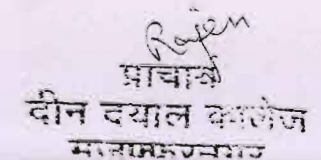 Rajen
प्राचार्य
दीन दयाल कालेज
मुजफ्फरनगर